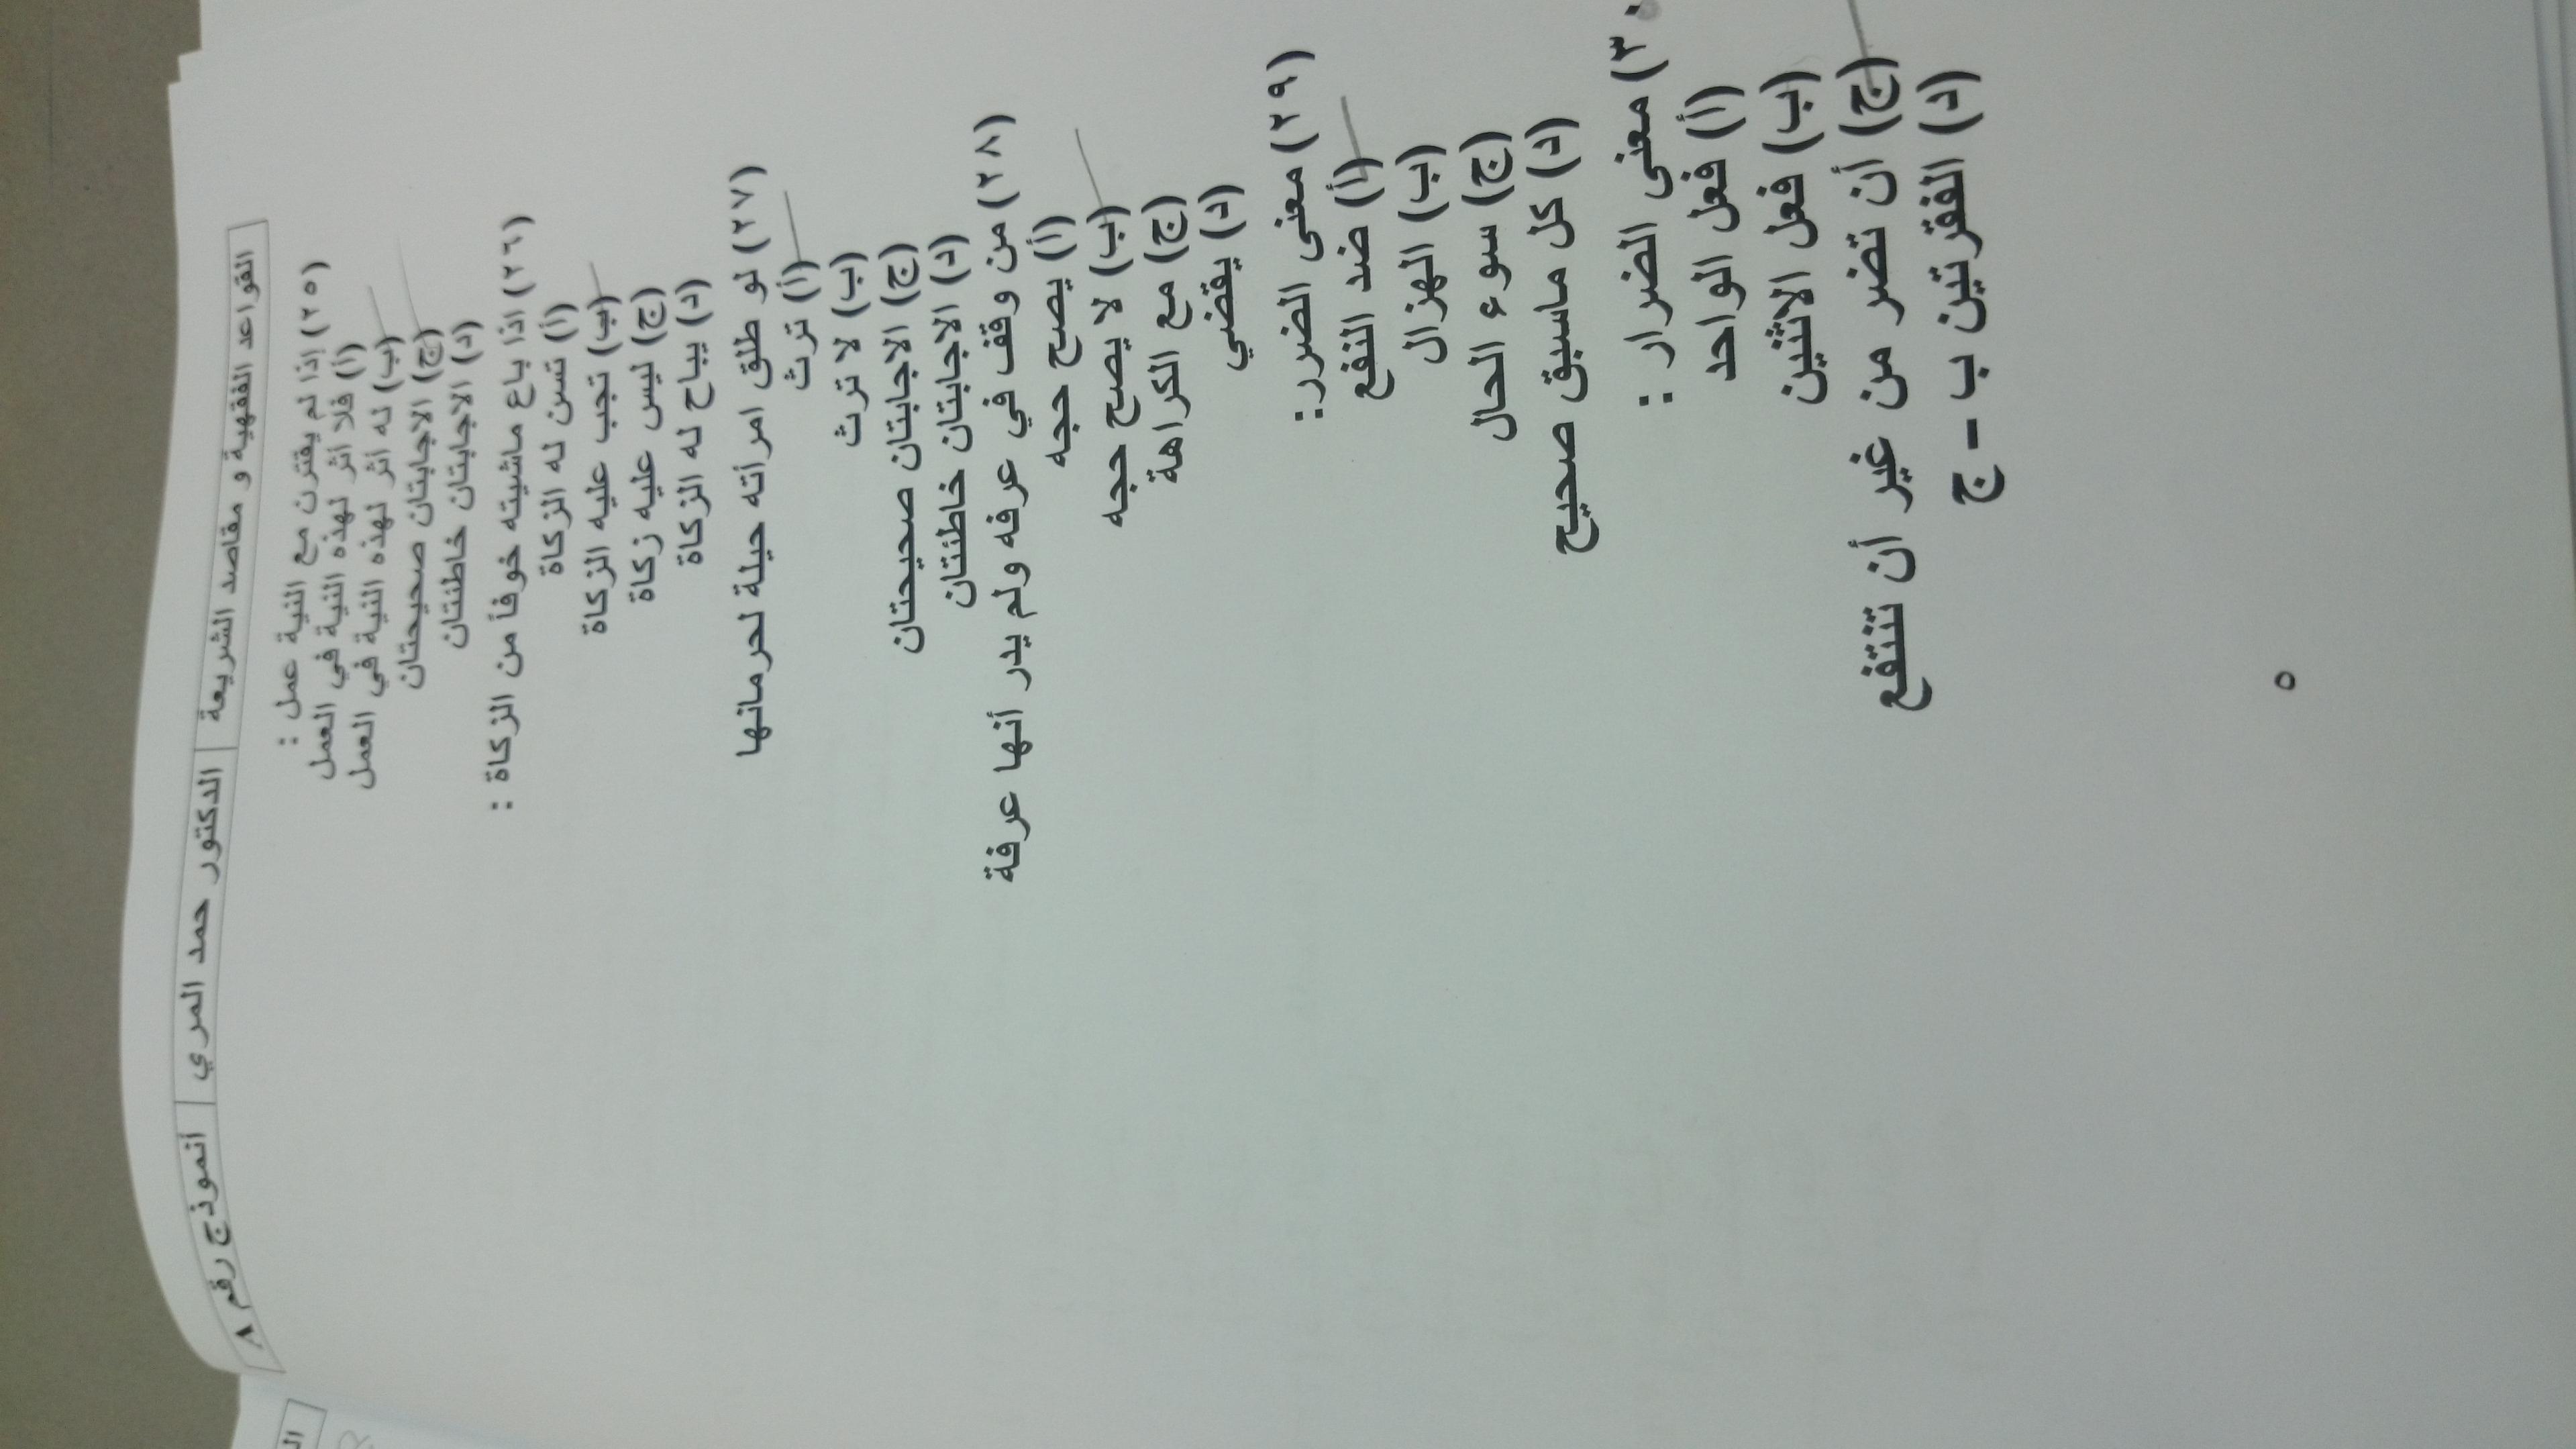 القواعد الفقهية و مقاصد الشريعة | الدكتور حمد المري | أنموذج رقم ٨
٢٥) إذا لم يقترن مع النية عمل :
(أ) فلا أثر لهذه النية في العمل
(ب) له أثر لهذه النية في العمل
(ج) الاجابتان صحيحتان
(د) الاجابتان خاطئتان
٢٦) اذا باع ماشيته خوفاً من الزكاة :
(أ) تسن له الزكاة
(ب) تجب عليه الزكاة
(ج) ليس عليه زكاة
(د) يباح له الزكاة
٢٧) لو طلق امرأته حيلة لحرمانها
(أ) ترث
(ب) لا ترث
(ج) الاجابتان صحيحتان
(د) الاجابتان خاطئتان
٢٨) من وقف في عرفه ولم يدر أنها عرفة
(أ) يصح حجه
(ب) لا يصح حجه
(ج) مع الكراهة
(د) يقضي
٢٩) معنى الضرر:
(أ) ضد النفع
(ب) الهزال
(ج) سوء الحال
(د) كل ماسبق صحيح
٣٠) معنى الضرار :
(أ) فعل الواحد
(ب) فعل الاثنين
(ج) أن تضر من غير أن تنتفع
(د) الفقرتين ب - ج
٥